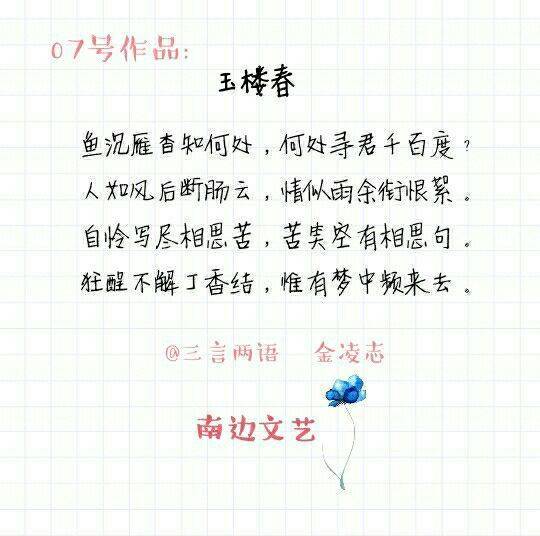 07号作品:
玉楼春
鱼沉雁杳知何处，何处寻君千百度？
人如风后断肠云，情似雨余衔恨絮。
自怜写尽相思苦，苦美空有相思句。
狂醒不解丁香结，惟有梦中频来去。
@三言两语 金凌志
南边文艺